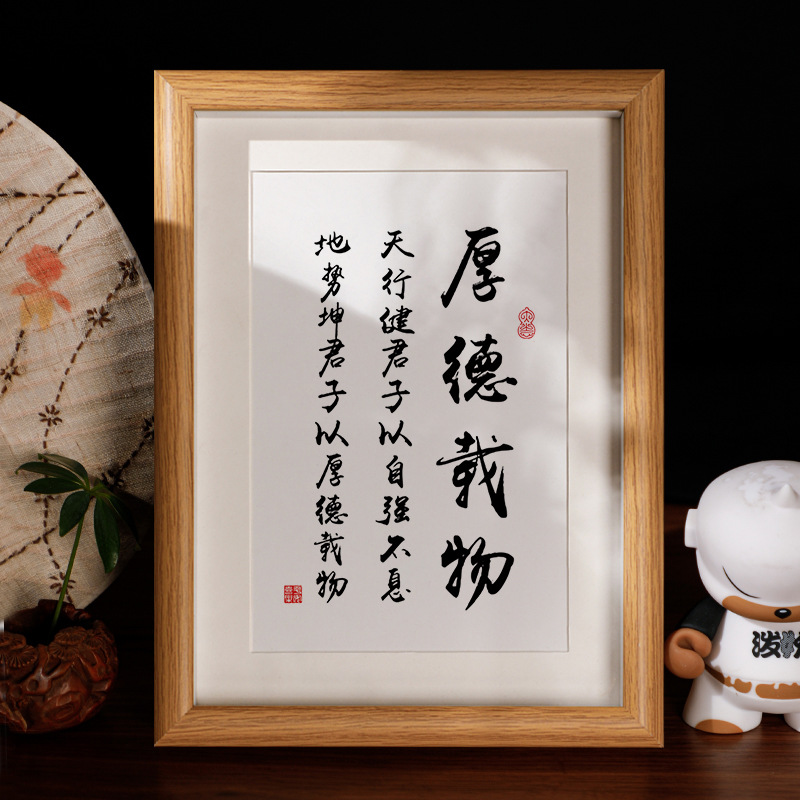 厚德载物
天行健君子以自强不息
地势坤君子以厚德载物
泼